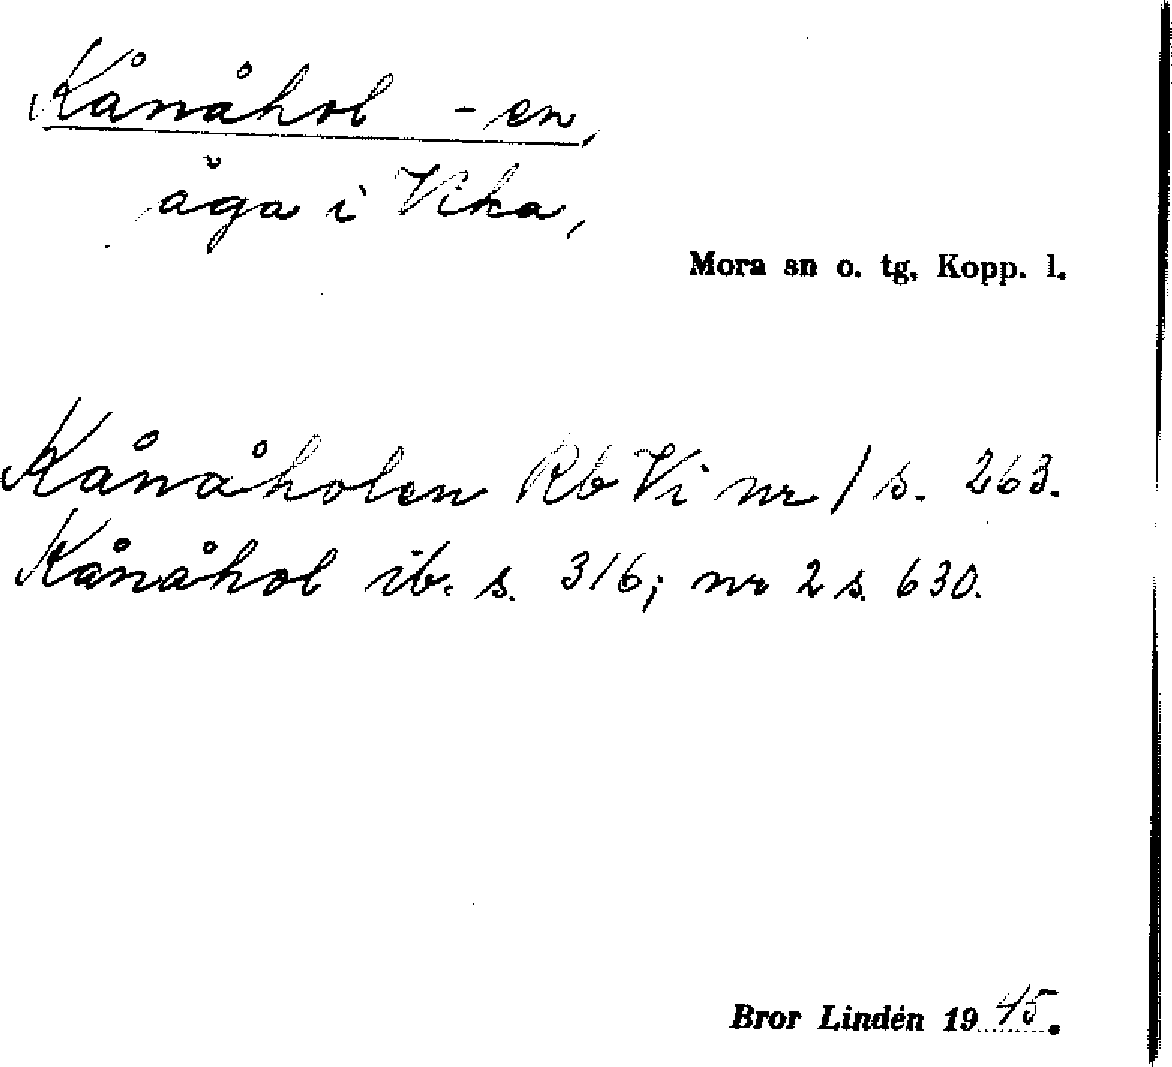 Kånåhol -en,
åga i Vika,
Mora sn o. tg, Kopp. l.
Kånåholen Rb Vi nr 1 s. 263.
Kånåhol ib. s. 316; nr 2 s. 630.
Bror Lindén 1945.